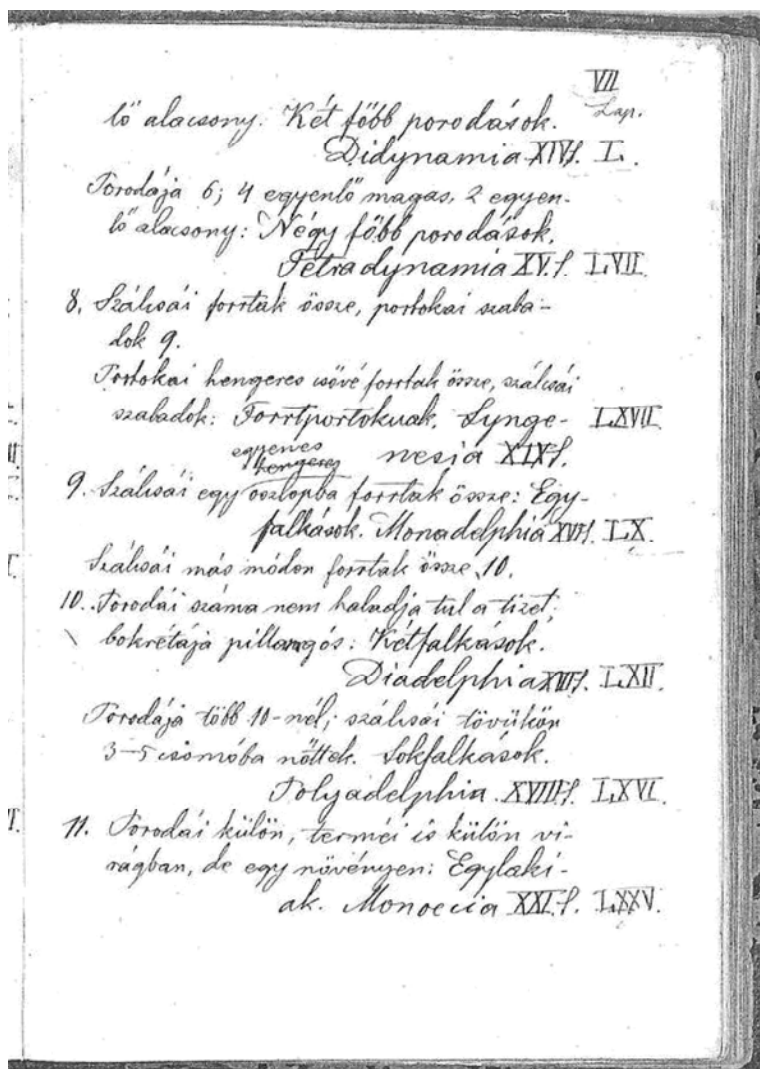 VII
Lap.
lő alacsony. Két főbb porodások.
Didynamia XIV. I.
Porodája 6; 4 egyenlő magas, 2 egyen-
lő alacsony: Négy főbb porodások.
Tetradynamia XV. LVII.
8. Szálcsái forrtak össze, portokai szaba-
dok 9.
Portokai hengeres csővé forrtak össze, szálcsái
szabadok: Forrtportokuak. Synge- LXVII.
nesia XIX.
egyenes
hengeres
9. Szálcsái egy oszlopba forrtak össze: Egy-
falkások. Monadelphia XVI. LX.
Szálcsái más módon forrtak össze 10.
10. Porodái száma nem haladja tul a tizet;
bokrétája pillangós: Kétfalkások.
Diadelphia XVII. LXII.
Porodája több 10-nél; szálcsái tövükön
3-5 csomóba nőttek. Sokfalkások.
Polyadelphia. XVIII. LXVI.
11. Porodái külön, terméi is külön vi-
rágban, de egy növényen: Egylaki-
ak. Monoecia XXI. LXXV.